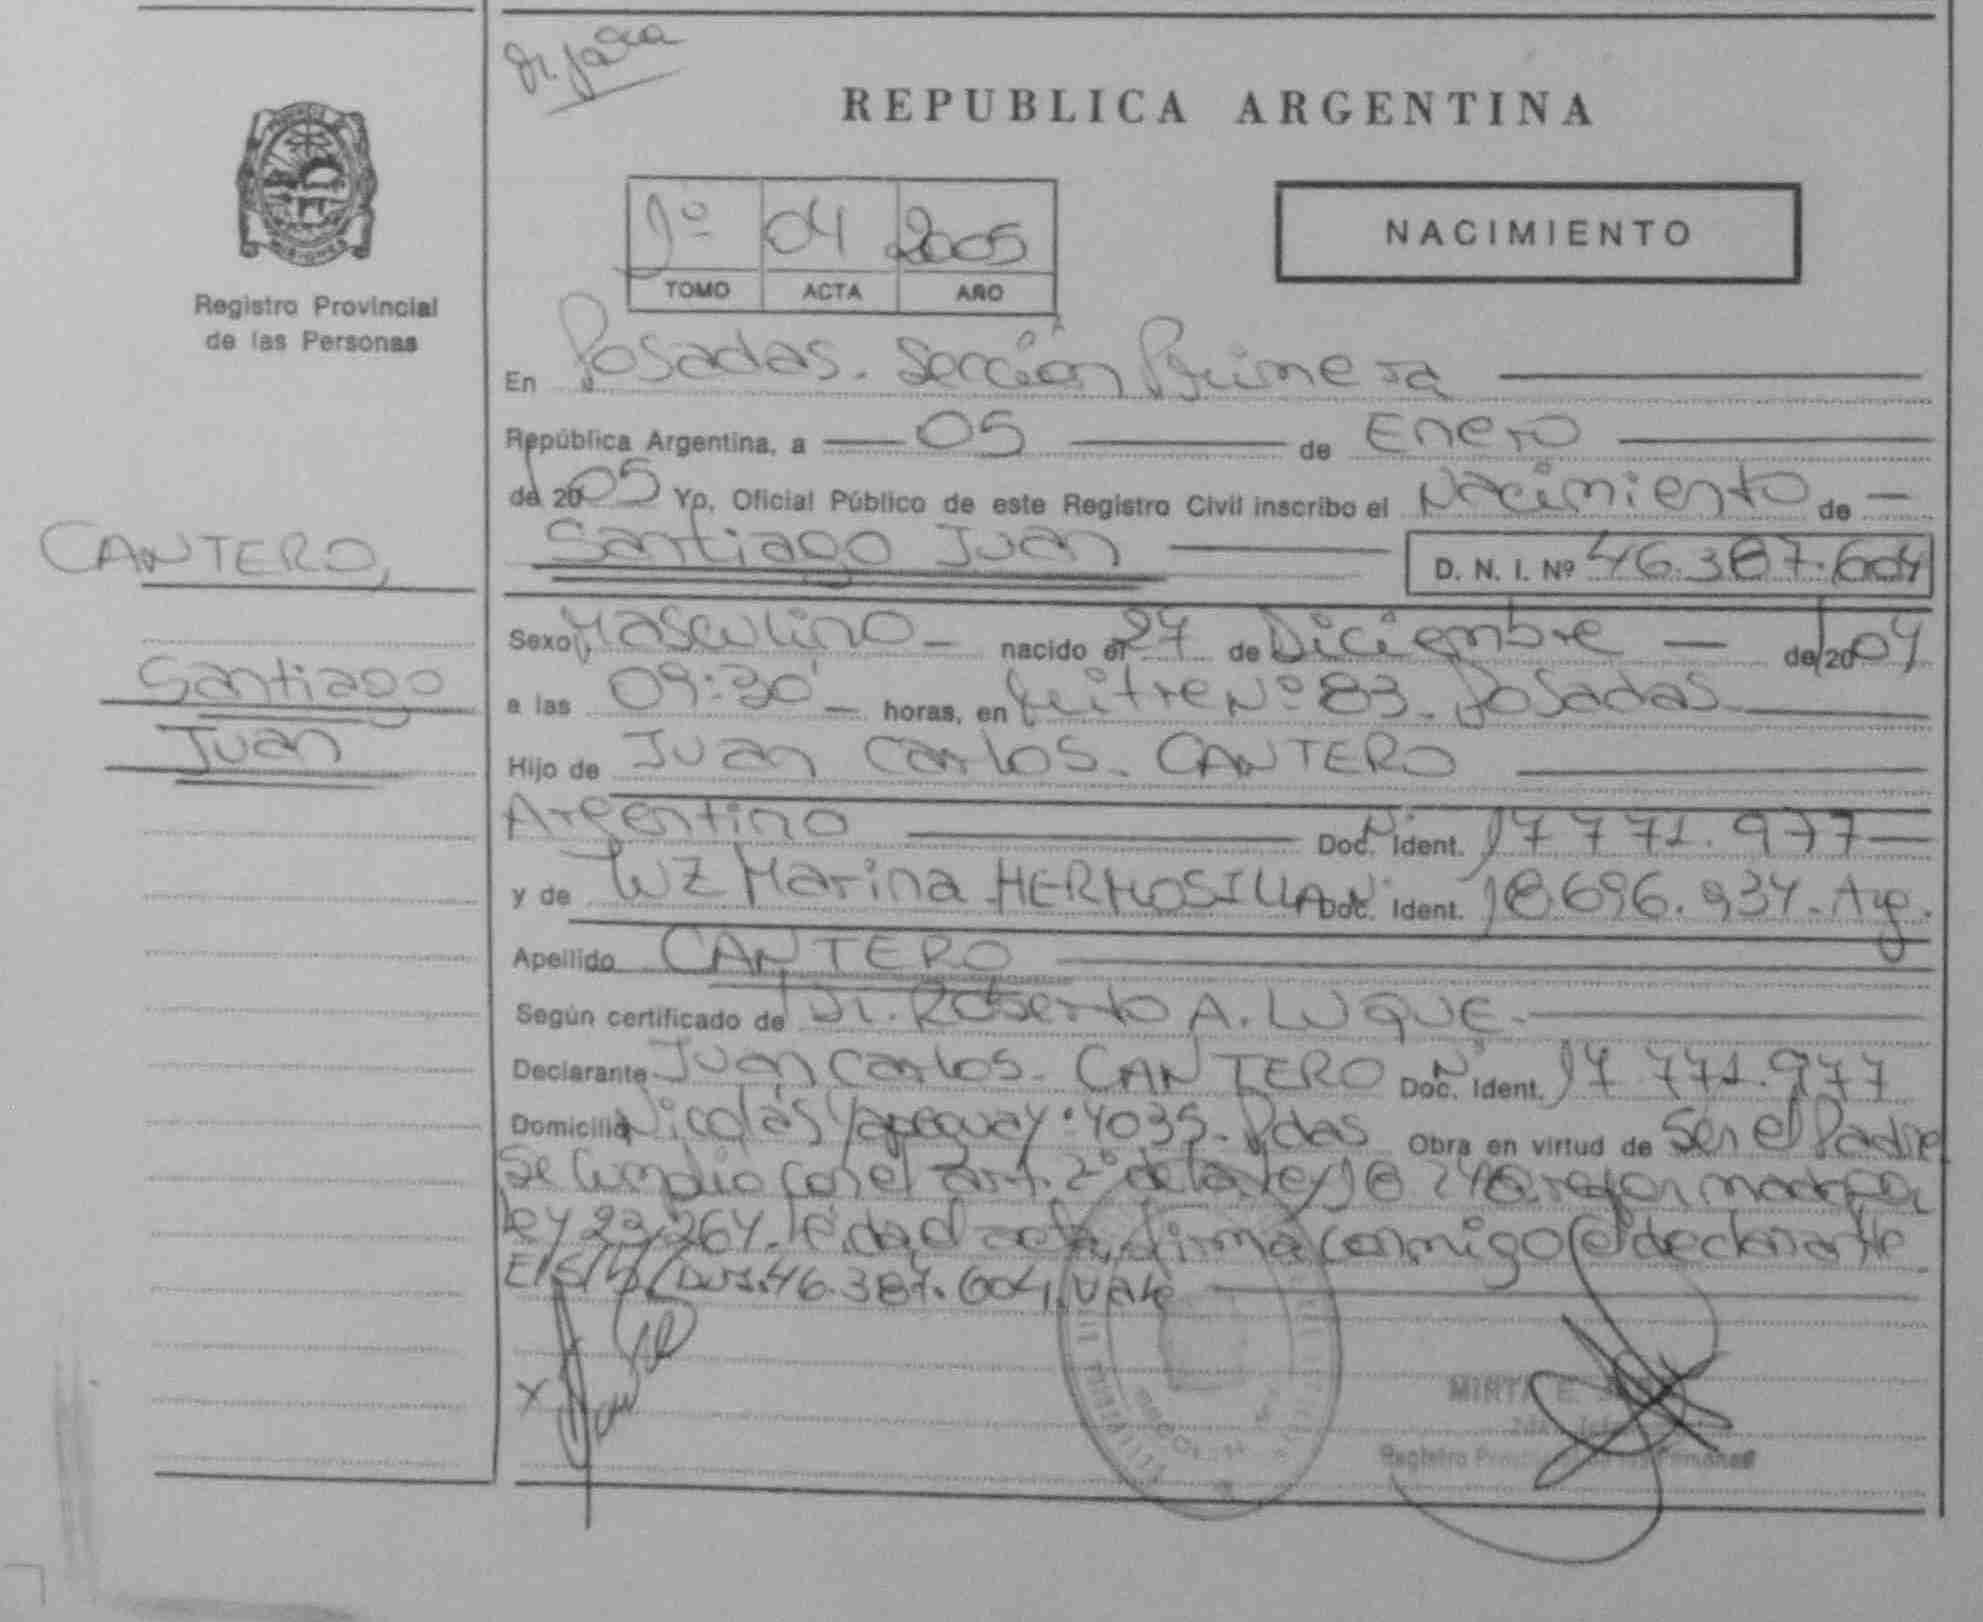 REPUBLICA ARGENTINA
Registro Provincial
de las Personas
1º 04 2005
TOMO ACTA AÑO
NACIMIENTO
En Posadas. Sección Primera
República Argentina, a 05 de Enero
de 2005 Yo, Oficial Público de este Registro Civil inscribo el Nacimiento de
Santiago Juan D. N. I. Nº 46.387.604
CANTERO,
Santiago
Juan
Sexo Masculino nacido el 27 de Diciembre de 2004
a las 09:30 horas, en Mitre Nº 83. Posadas
Hijo de Juan Carlos. CANTERO
Argentino Doc. Ident. Nº 17 771.977
y de Luz Marina HERMOSILLA Doc. Ident. Nº 18.696.934. Arg.
Apellido CANTERO
Según certificado de Dr. Roberto A. LUQUE.
Declarante Juan Carlos. CANTERO Doc. Ident. Nº 17 771.977
Domicilio Nicolás Yapeguay. 4035. Pdas Obra en virtud de Ser el Padre
Se Cumplio con el art. 2º de la Ley 18 248 reformado por
Ley 23.264. Leída el acta, firma conmigo el declarante
E/S/ DNI.46.387.604, Vale
X
MIRTA E.
Registro Personas